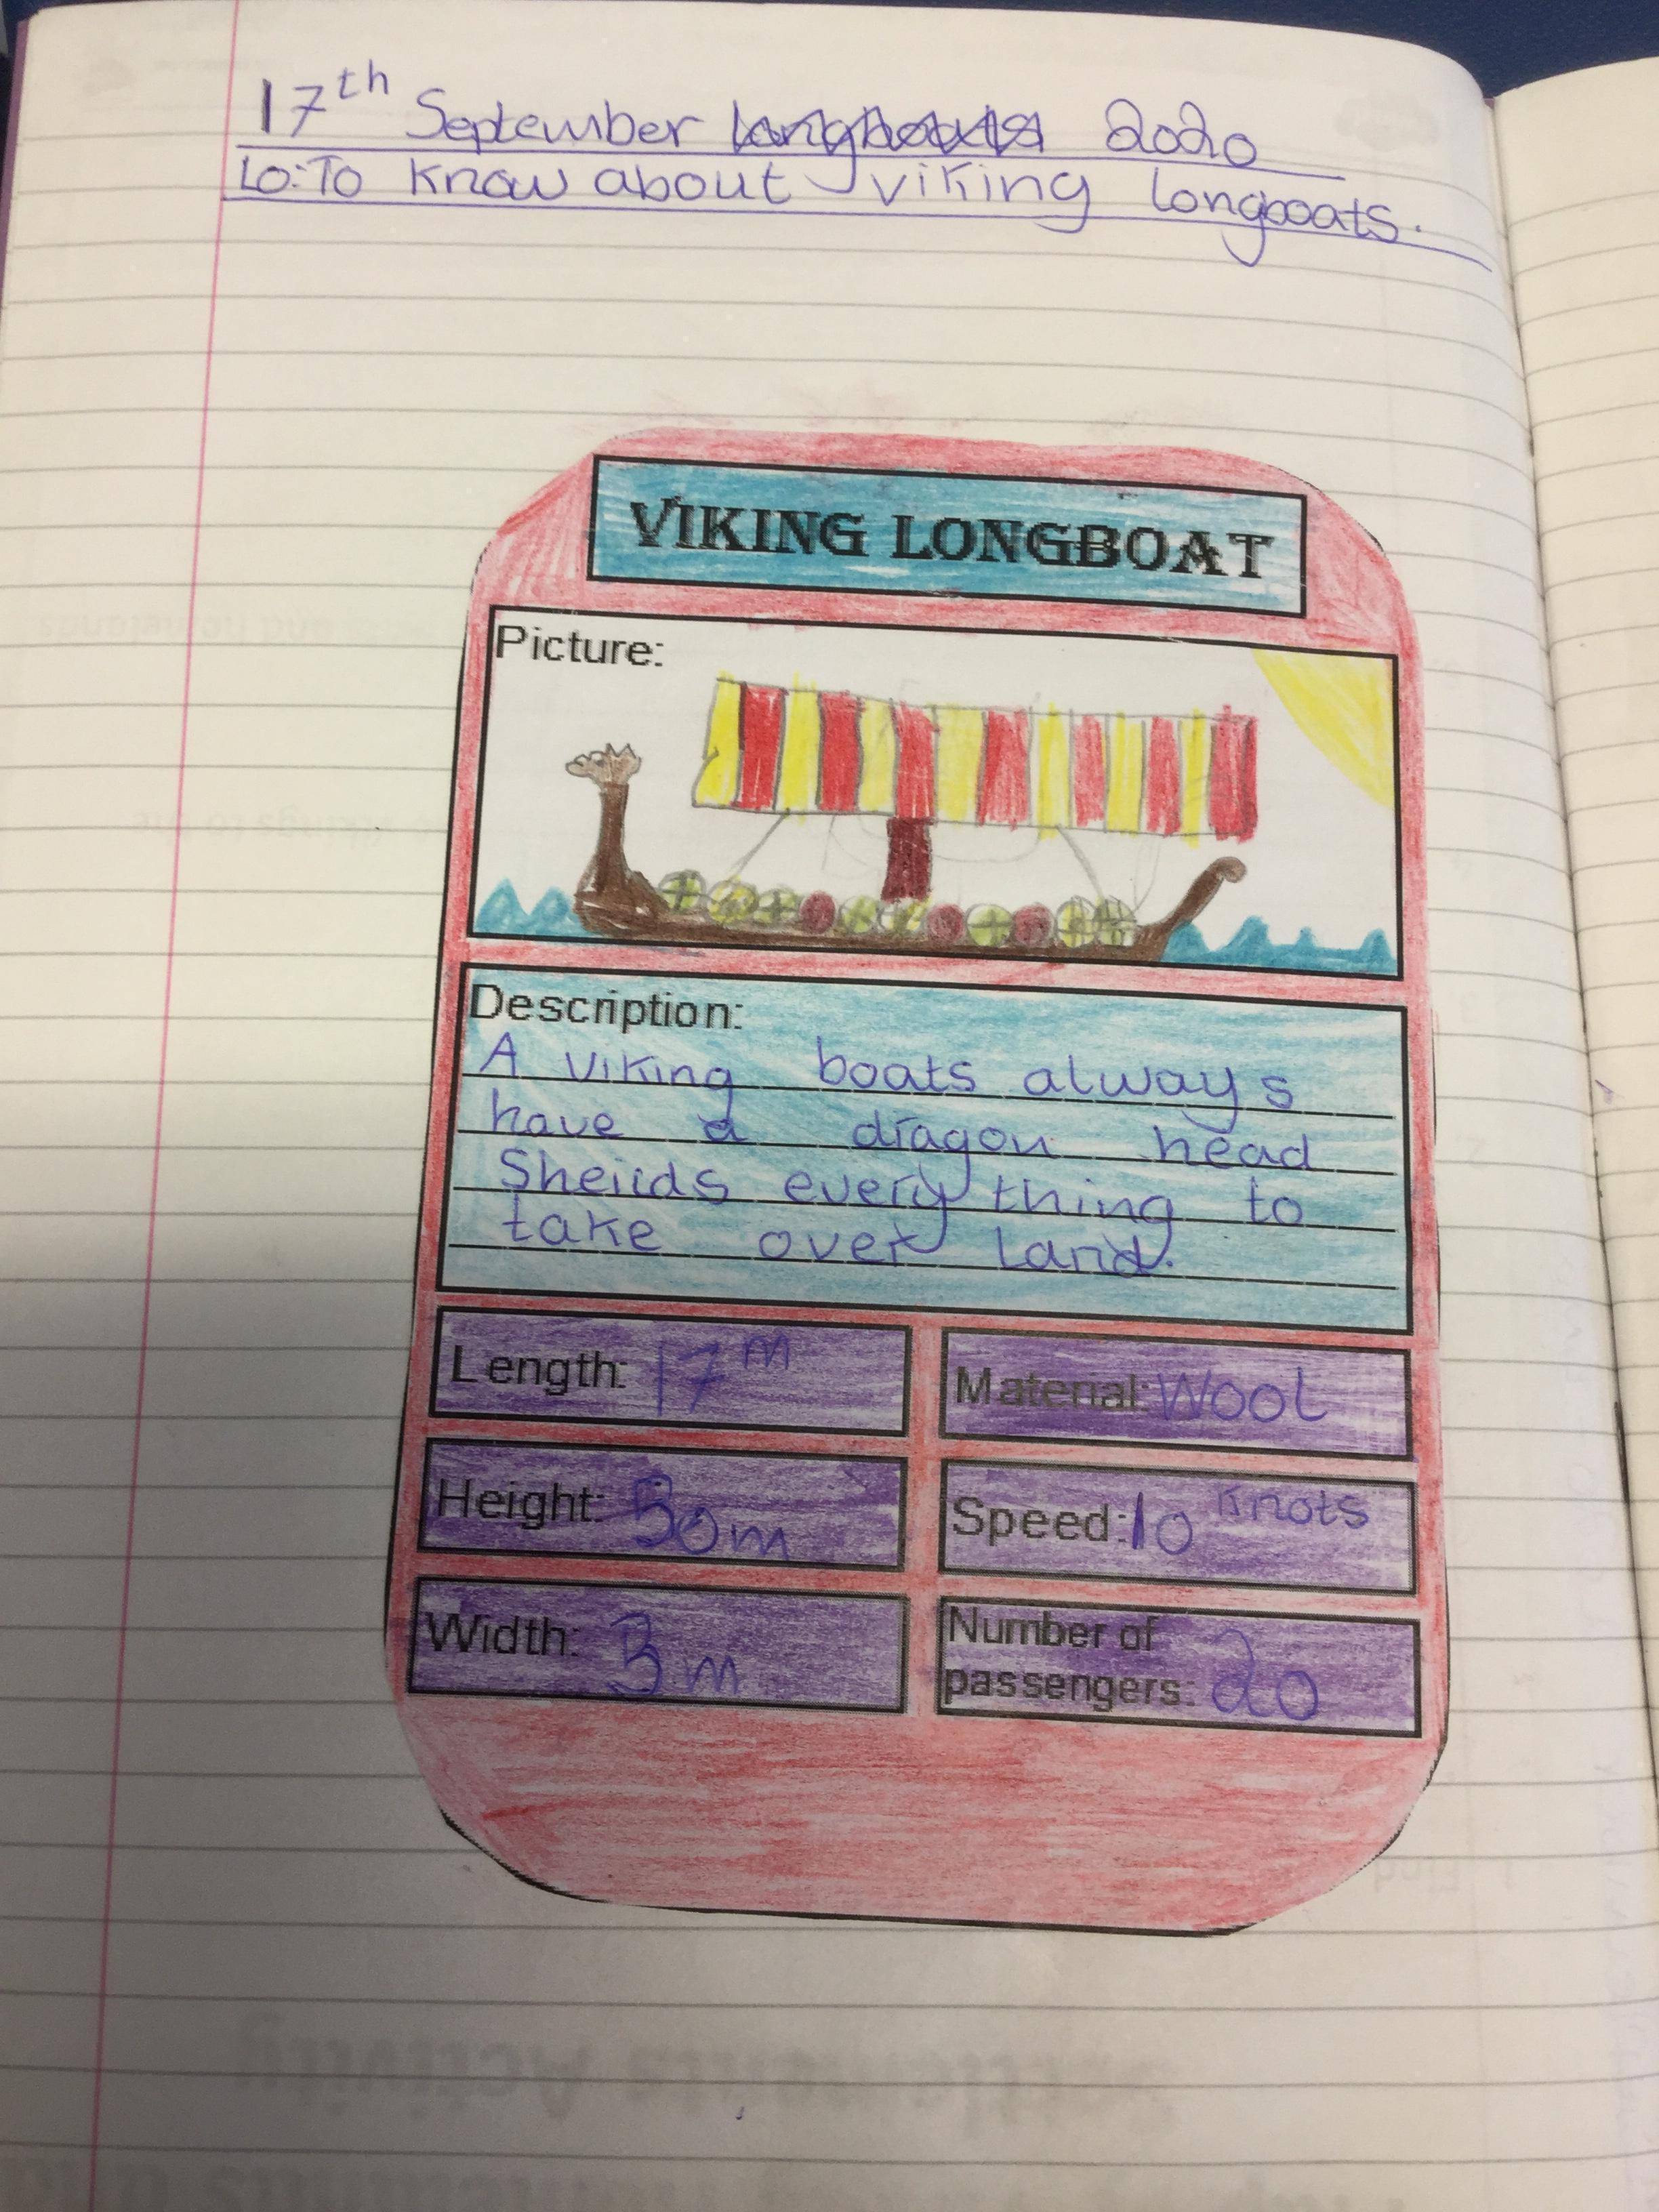 17th September longboats 2020
Lo: To know about viking longboats.
VIKING LONGBOAT
Picture:
Description:
A viking boats always
have a dragon head
Sheilds every thing to
take over land.
Length: 17 m
Material: Wool
Height: 30m
Speed: 10 knots
Width: 3 m
Number of
passengers: 20